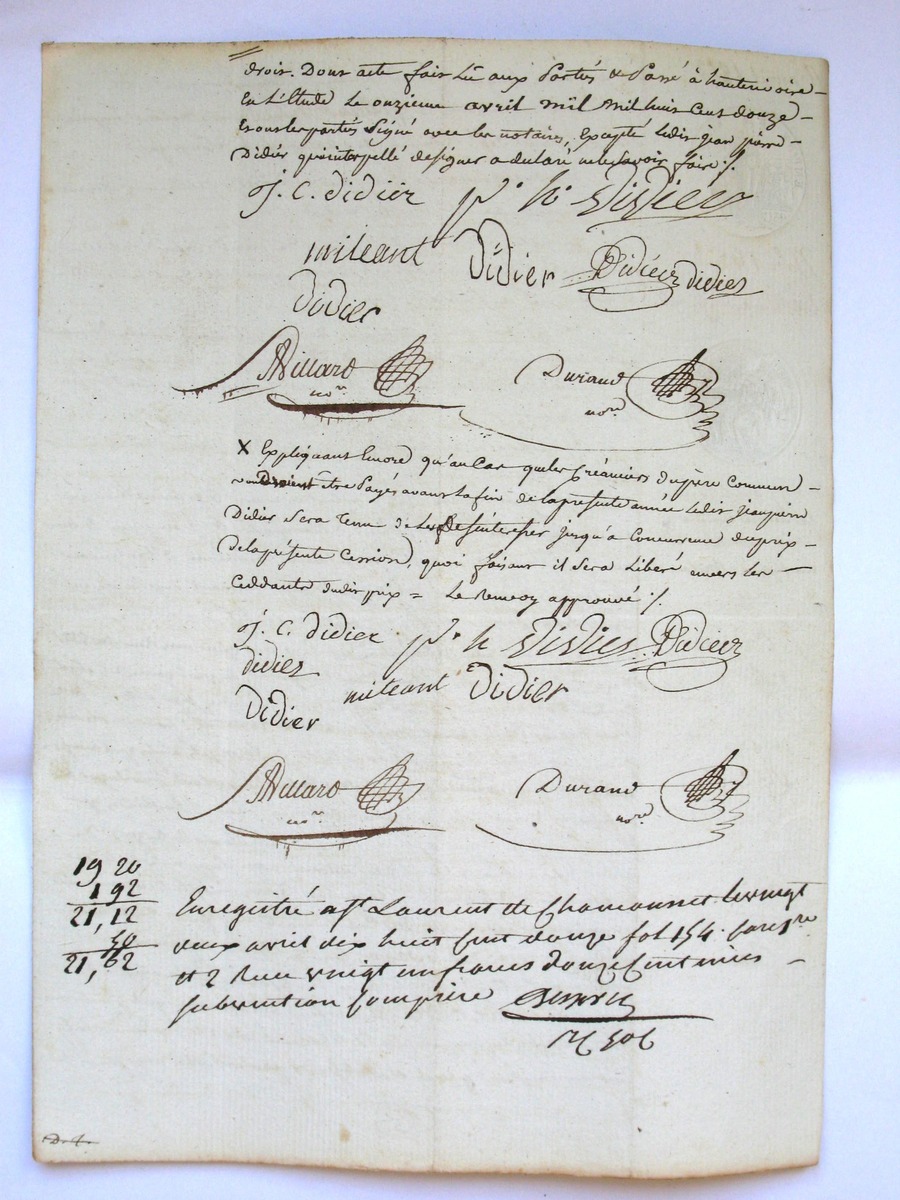 droit. Dont acte fait Lû aux Partés & Passé à hauterivoire
En L'étude Le onzieme avril mil mil huit Cent douze
Et ont les partés Signé avec les notaires, Excepté Ledit jean pierre
Didier qui interpellé de signer a déclaré ne le Savoir faire ./.
J. C. didier p. h. didier
miteant Didier Didier didier
Didier
Villard Durand
not. nore
X Expliquant Encore qu'au Cas que les Créanciers du père Commun
voudroient être Payés avant La fin de la présente année Ledit jean pierre
Didier Sera Tenu de Les Desintéresser jusqu'à Concurrence du prix
de la présente Cession, quoi faisant il Sera Libéré envers les
Cédants dudit prix = Le Renvoy approuvé ./.
J. C. didier p. h didier Didier
didier
miteant Didier
Didier
Villard Durand
not. nore
19 20
1 92
21,12
50
21,62
Enregistré a St Laurent de Chamousset le vingt
deux avril dix huit Cent douze fol 154.
et 2 Reçu vingt un francs douze Centimes
subvention Comprise
D. 4.